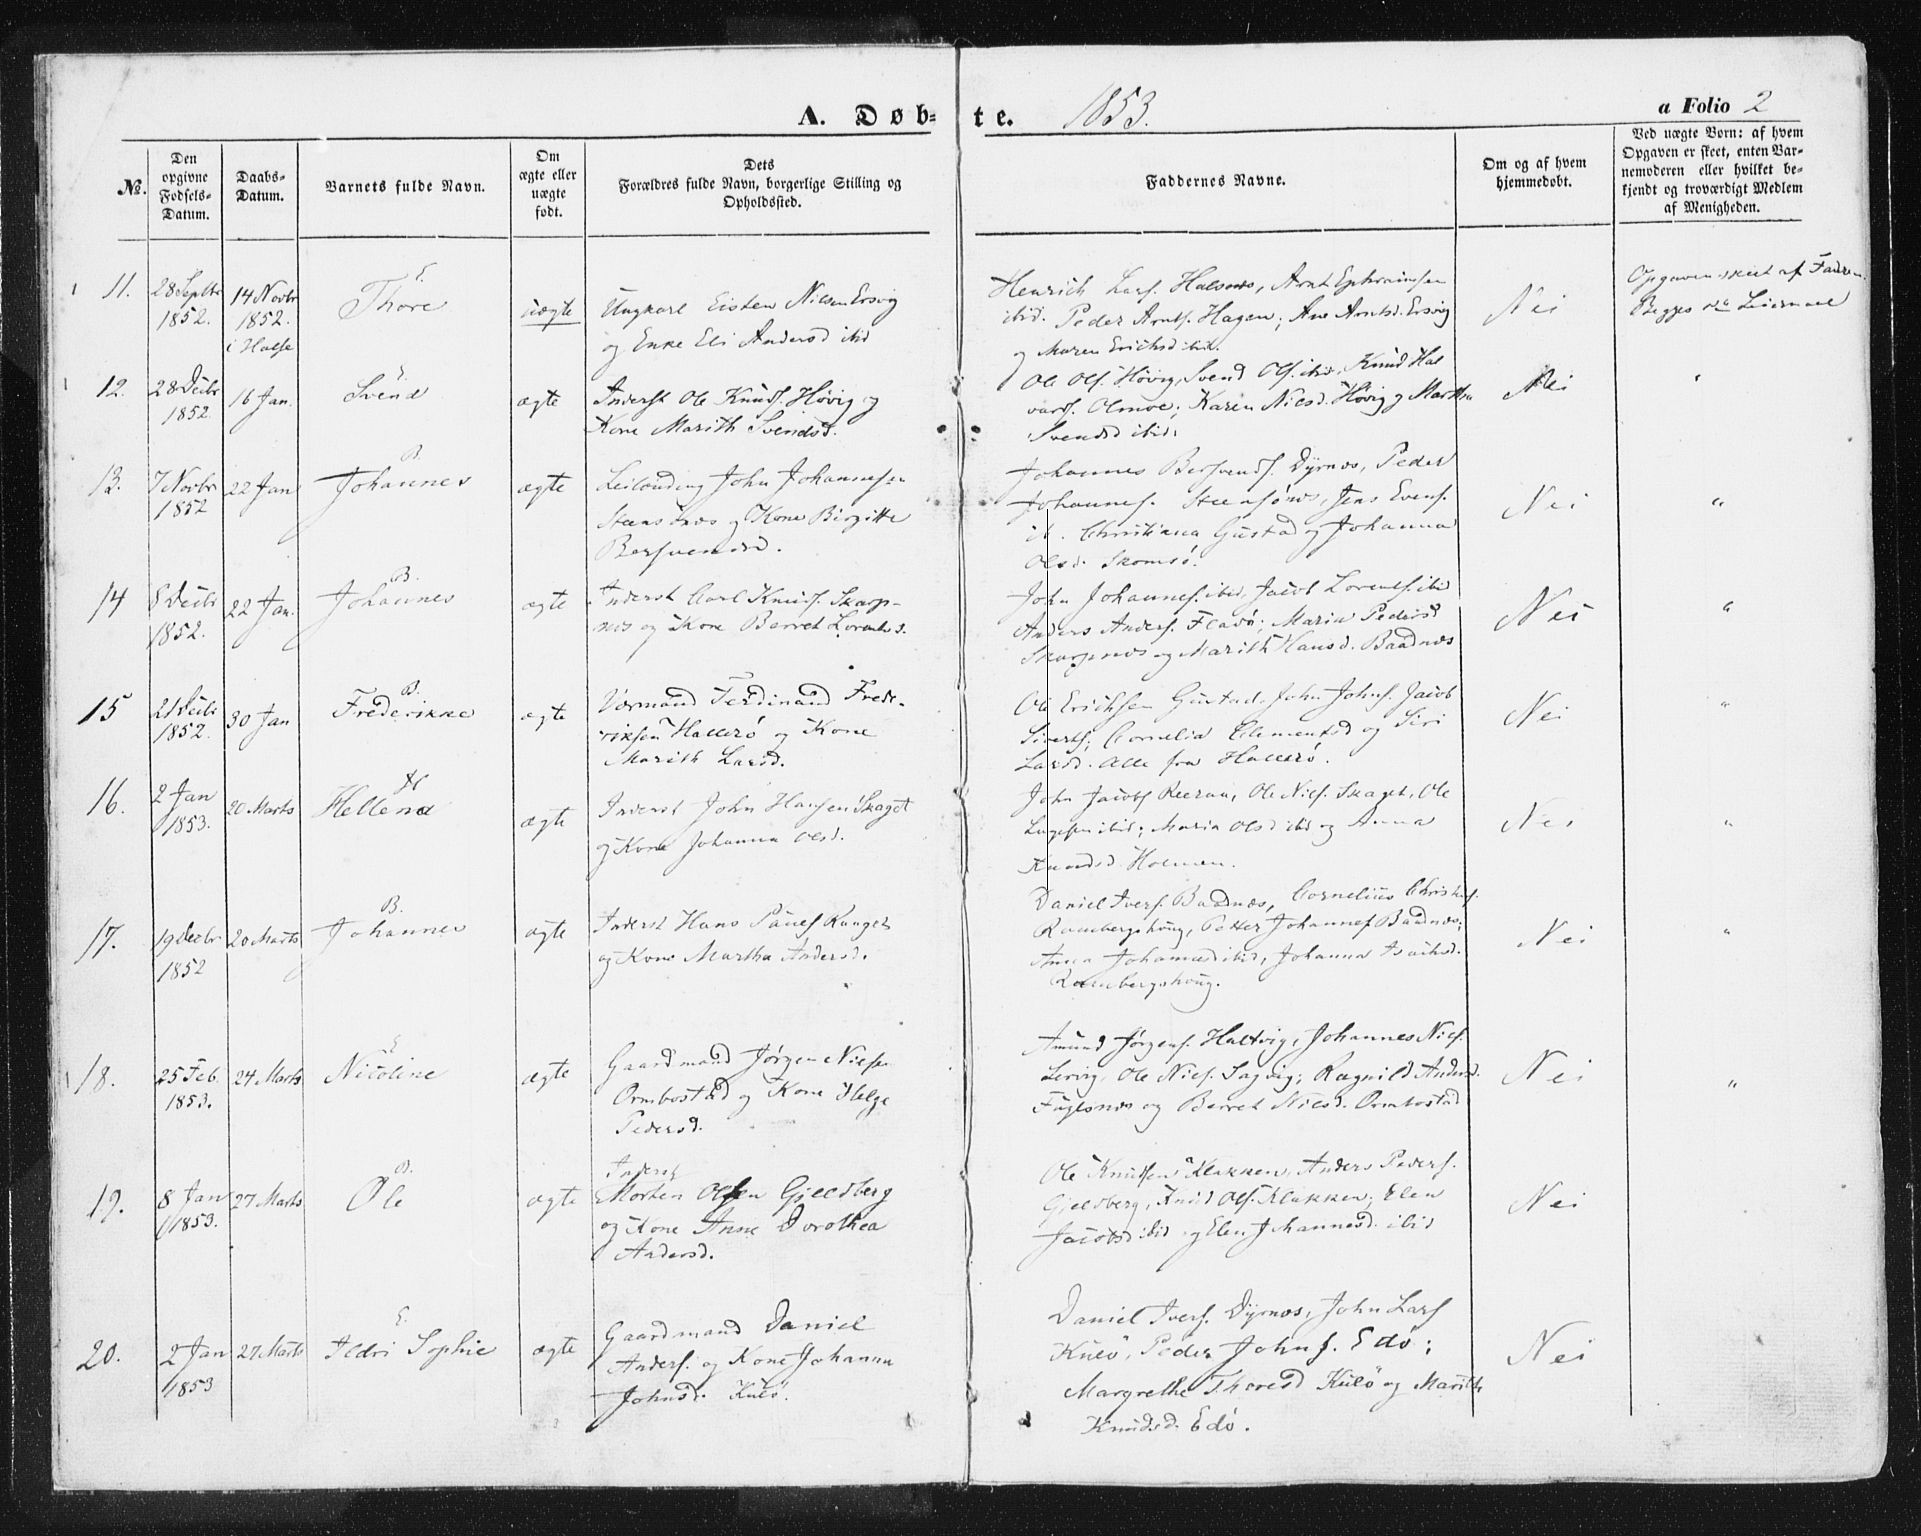 A. Døbte. 1853. a Folio 2
No.
Den opgivne Fødsels-Datum.
Daabs-Datum.
Barnets fulde Navn.
Om ægte eller uægte født.
Dets Forældres fulde Navn, borgerlige Stilling og Opholdssted.
Faddernes Navne.
Om og af hvem hjemmedøbt.
Ved uægte Børn: af hvem Opgaven er skeet, enten Barnemoderen eller hvilket bekjendt og troværdigt Medlem af Menigheden.
11.
28 Septbr 1852.
14 Novbr 1852. i Halse
E. Thore
uægte
Ungkarl Eisten Nilsen Ersvig
og Enke Eli Andersd ibid
Henrich Lars. Halsnæs, Arnt Ephraimsen
ibid. Peder Arnts. Hagen; Ane Arntsd. Ersvig
og Maren Erichsd ibid.
Nei
Opgaven skeet af Faderen.
Begges Leiermaal
12.
28 Decbr 1852
16 Jan.
E. Svend
ægte
Inderst Ole Knuds. Høvig og
Kone Marith Svendsd.
Ole Ols. Høvig, Svend Ols. ibid, Knud Hal
vards. Olmoe; Karen Nilsd. Høvig og Martha
Svendsd ibid.
Nei
"
13.
7 Novbr 1852
22 Jan
B. Johannes
ægte
Leilænding John Johannesen
Steensønæs og Kone Birgitte
Bersvendsd.
Johannes Bersvends. Dyrnæs, Peder
Johannes. Steensønæs, Jens Evens.
ib. Christiana Gustad og Johanna
Olsd. Skomsø.
Nei
"
14
8 Decbr 1852.
22 Jan.
B. Johannes
ægte
Inderst Carl Knuds. Skarp-
nes og Kone Berret Lorentsd.
John Johannes. ibid, Jacob Lorents. ibid
Anders Anders. Fladø; Maria Pedersd
Skarpnes og Marith Hansd. Baadnæs
Nei
"
15
21 Decbr 1852.
30 Jan
B. Frederikke
ægte
Værmand Ferdinand Frede-
riksen Hallerø og Kone
Marith Larsd.
Ole Erichsen Gustad, John Johns. Jacob
Siverts; Cornelia Clementsd og Siri
Larsd. Alle fra Hallerø.
Nei
"
16.
2 Jan 1853.
20 Marts
H Hellena
ægte
Inderst John Hansen Skaget
og Kone Johanna Olsd.
John Jacobs Reeraa, Ole Niels. Skaget, Ole
ibid; Maria Olsd ibid og Anna
Knudsd. Holmen.
Nei
"
17.
19 Decbr 1852
20 Marts
B. Johannes
ægte
Inderst Hans Pauels Ranges
og Kone Martha Andersd.
Daniel Ivers. Baadnæs, Cornelius Christofs.
Rambergshoug, Petter Johannes Baadnæs;
Anna Johannesd ibid, Johanna Isachsd.
Rambergshoug.
Nei
"
18.
25 Feb. 1853.
24 Marts
E Nicoline
ægte
Gaardmand Jørgen Nielsen
Ormbostad og Kone Helge
Pedersd.
Amund Jørgens. Haltvig, Johannes Niels.
Lervig, Ole Niels. Sagvig; Ragnild Andersd.
Fuglsnæs og Berret Nilsd. Ormbostad
Nei
"
19.
8 Jan 1853.
27 Marts
B. Ole
ægte
Inderst
Morten Olsen Gjeldberg
og Kone Anne Dorothea
Andersd.
Ole Knudsen Klakken, Anders Peders.
Gjeldberg, Knud Ols. Klakken; Elen
Jacobsd ibid og Elen Johannesd. ibid
Nei
20.
2 Jan 1853
27 Marts
E. Ildri Sophie
ægte
Gaardmand Daniel
Anders. og Kone Johanna
Johnsd. Kulø.
Daniel Ivers. Dyrnæs, John Lars
Kulø, Peder Johns. Edø;
Margrethe Thoresd Kulø og Marith
Knudsd. Edø.
Nei